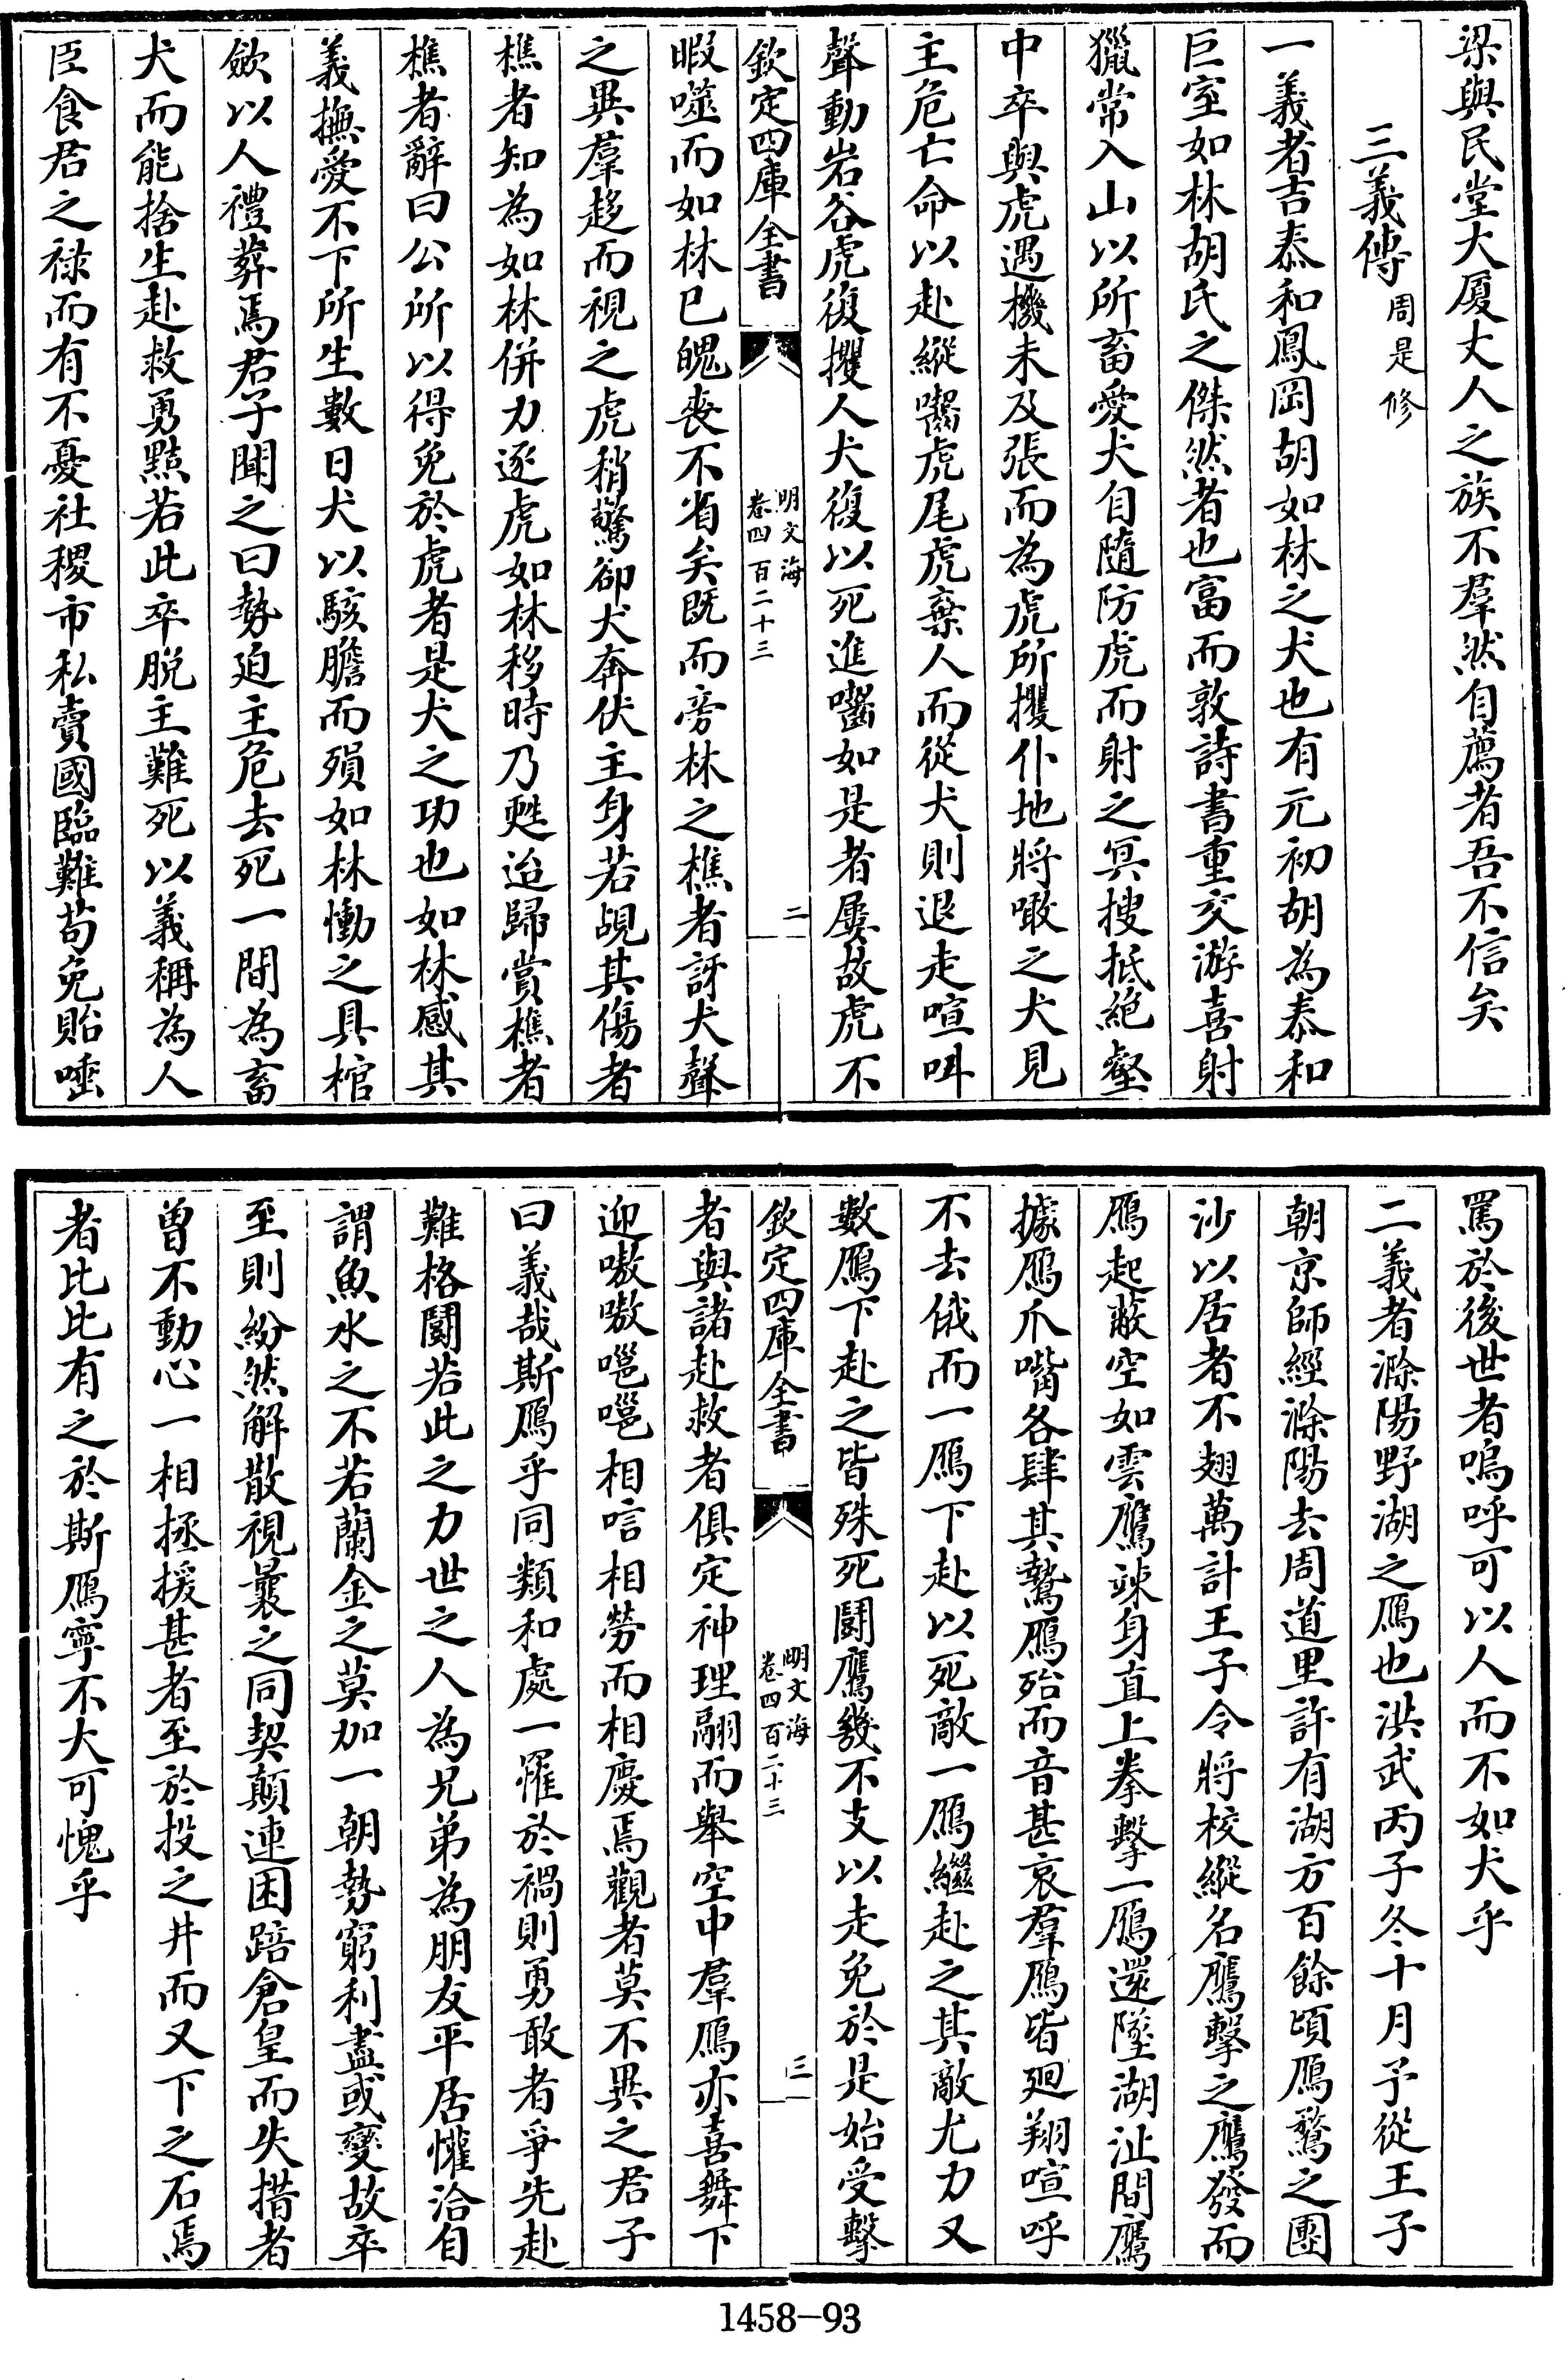 梁與民堂大厦丈人之族不羣然自薦者吾不信矣
三義傳周是修
一義者吉泰和鳳岡胡如林之犬也有元初胡為泰和
巨室如林胡氏之傑然者也富而敦詩書重交游喜射
獵常入山以所畜愛犬自隨防虎而射之冥搜抵絶壑
中卒與虎遇機未及張而為虎所攫仆地將噉之犬見
主危亡命以赴縱嚙虎尾虎棄人而從犬則退走喧呌
聲動岩谷虎復攫人犬復以死進嚙如是者屢故虎不
欽定四庫全書
明文海
卷四百二十三
二
暇噬而如林已魄喪不省矣既而旁林之樵者訝犬聲
之異羣趍而視之虎稍驚卻犬奔伏主身若覘其傷者
樵者知為如林併力逐虎如林移時乃甦迨歸賞樵者
樵者辭曰公所以得免於虎者是犬之功也如林感其
義撫愛不下所生數日犬以駭膽而殞如林慟之具棺
斂以人禮葬焉君子聞之曰勢廹主危去死一間為畜
犬而能捨生赴救勇黠若此卒脱主難死以義稱為人
臣食君之禄而有不憂社稷市私賣國臨難苟免貽唾
罵於後世者嗚呼可以人而不如犬乎
二義者滁陽野湖之鴈也洪武丙子冬十月予從王子
朝京師經滁陽去周道里許有湖方百餘頃鴈鶩之團
沙以居者不翅萬計王子令將校縱名鷹擊之鷹發而
鴈起蔽空如雲鷹竦身直上拳擊一鴈還墜湖沚間鷹
據鴈爪嘴各肆其鷙鴈殆而音甚哀羣鴈皆廻翔喧呼
不去俄而一鴈下赴以死敵一鴈繼赴之其敵尤力又
數鴈下赴之皆殊死鬭鷹幾不支以走免於是始受擊
欽定四庫全書
明文海
卷四百二十三
三
者與諸赴救者俱定神理翮而舉空中羣鴈亦喜舞下
迎嗷嗷嗈嗈相唁相勞而相慶焉觀者莫不異之君子
曰義哉斯鴈乎同類和處一罹於禍則勇敢者爭先赴
難格鬭若此之力世之人為兄弟為朋友平居懽洽自
謂魚水之不若蘭金之莫加一朝勢窮利盡或變故卒
至則紛然解散視曩之同契顛連困踣倉皇而失措者
曾不動心一相拯援甚者至於投之井而又下之石焉
者比比有之於斯鴈寧不大可愧乎
1458-93